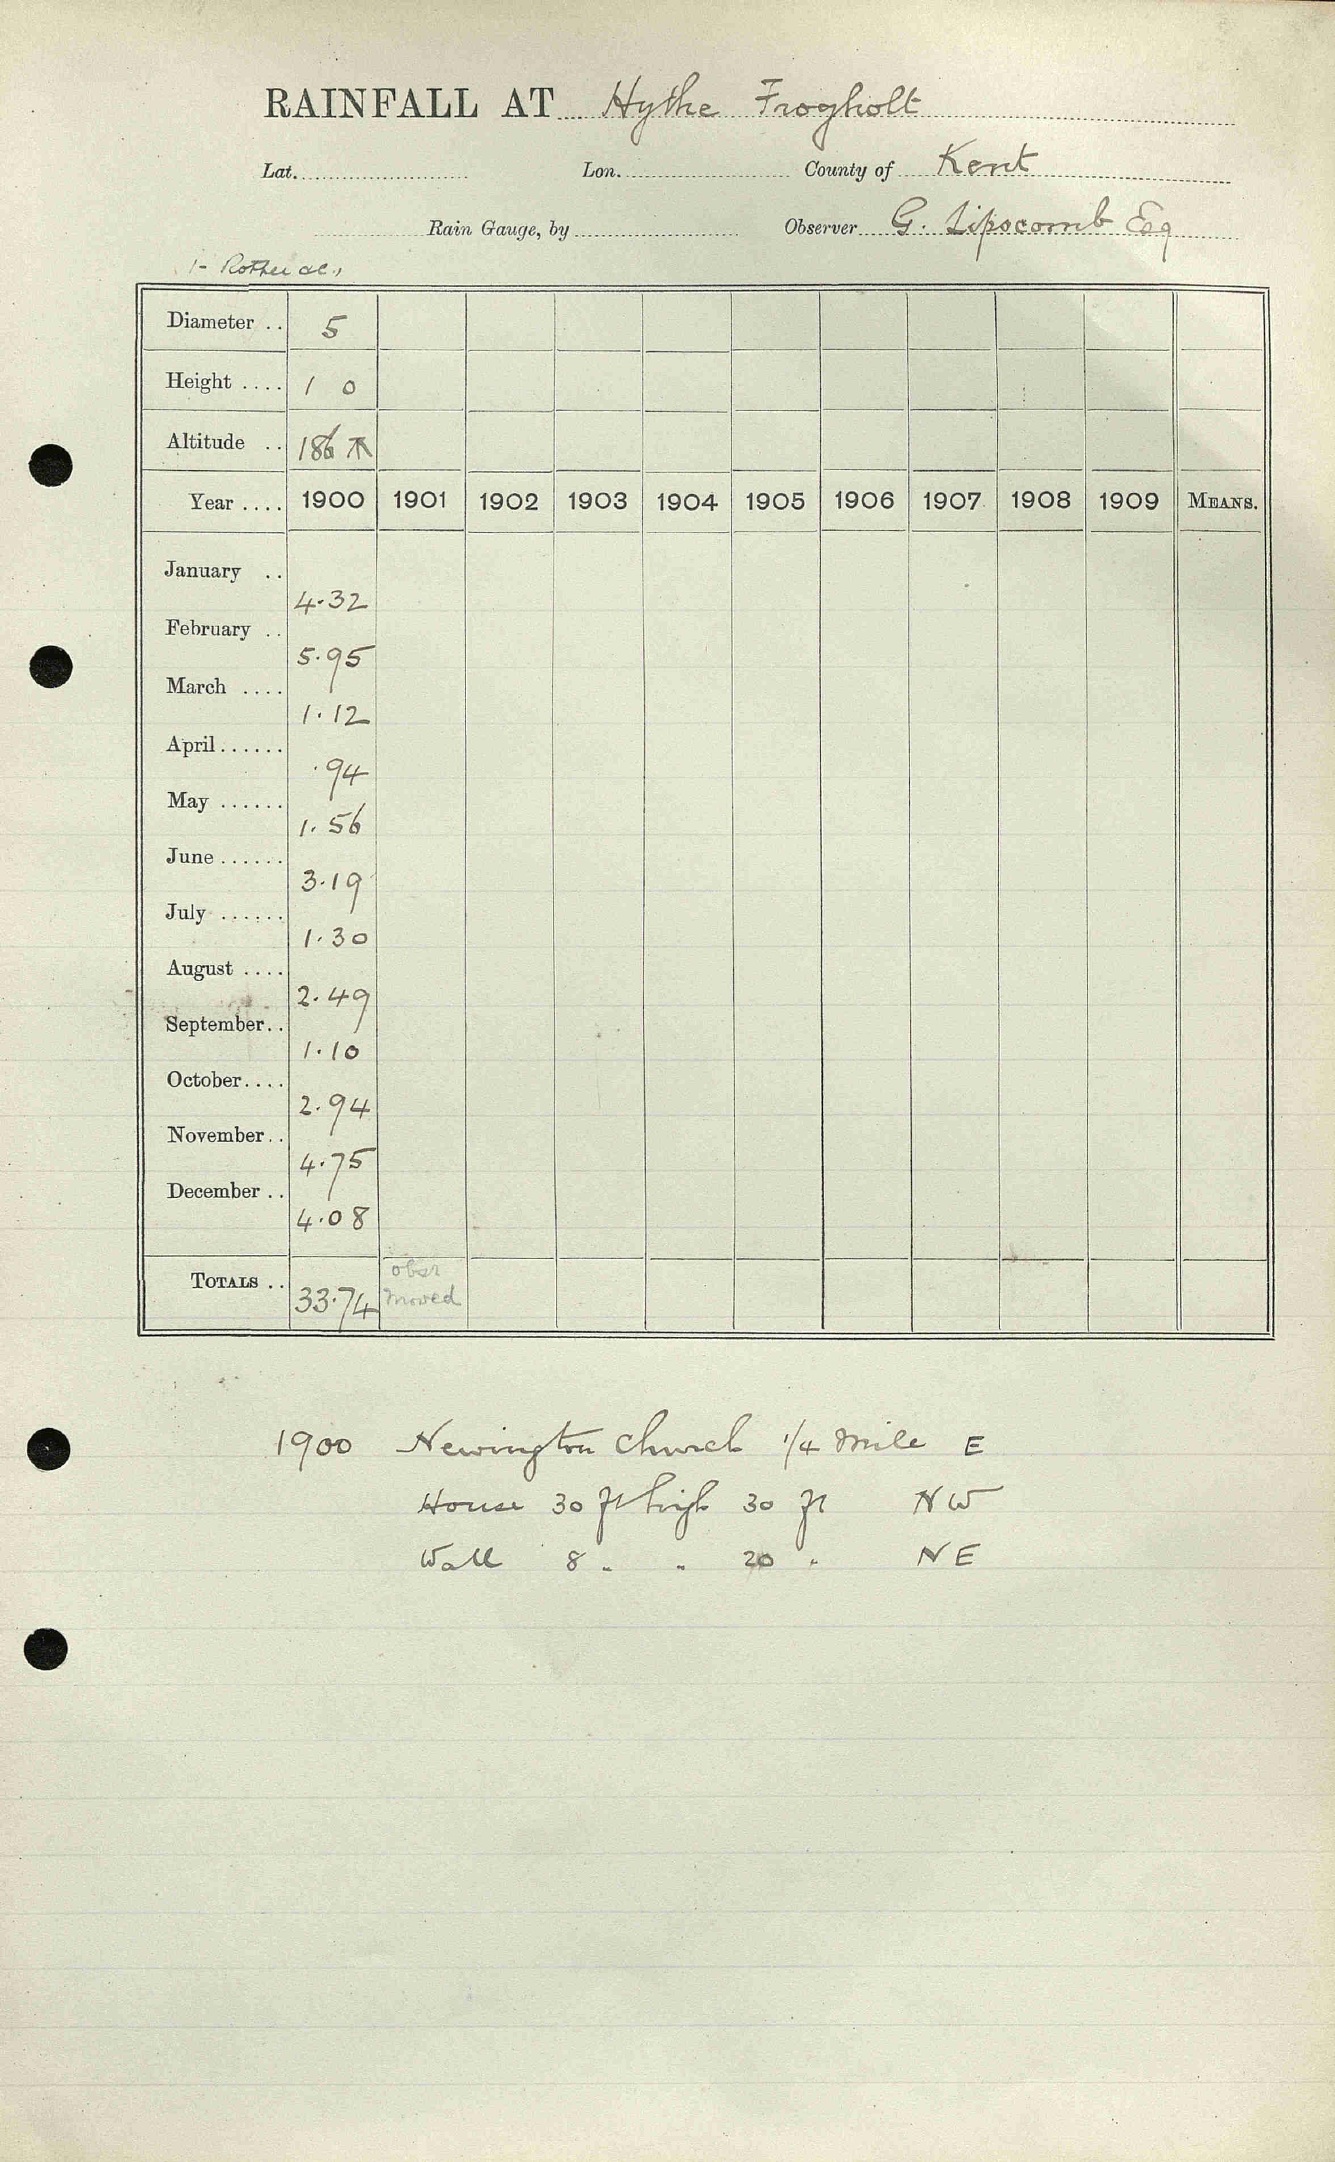 RAINFALL AT Hythe Frogholt
Lat. Lon. County of Kent
Rain Gauge, by Observer G. Lipscomb Esq
1- Rother &c.,
Diameter .. 5
Height .... 1 0
Altitude .. 186
Year .... 1900 1901 1902 1903 1904 1905 1906 1907 1908 1909 MEANS.
January ..
4.32
February ..
5.95
March ....
1.12
April ......
.94
May ......
1.56
June ......
3.19
July ......
1.30
August ....
2.49
September ..
1.10
October ....
2.94
November ..
4.75
December ..
4.08
TOTALS .. 33.74 obsr moved
1900 Newington Church 1/4 Mile E
House 30 ft high 30 ft NW
Wall 8 " " 20 " NE